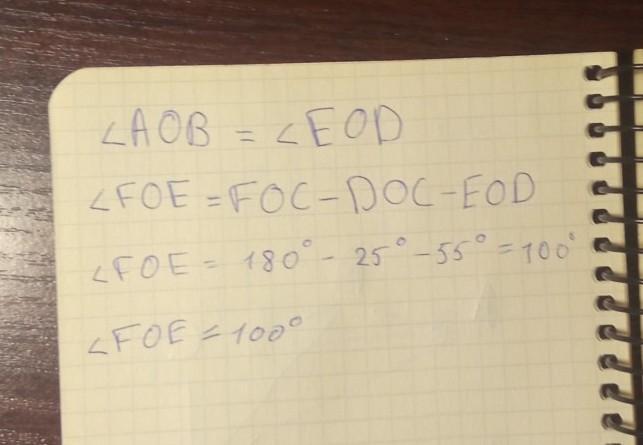 ∠AOB = ∠EOD
∠FOE = FOC - DOC - EOD
∠FOE = 180° - 25° - 55° = 100°
∠FOE = 100°